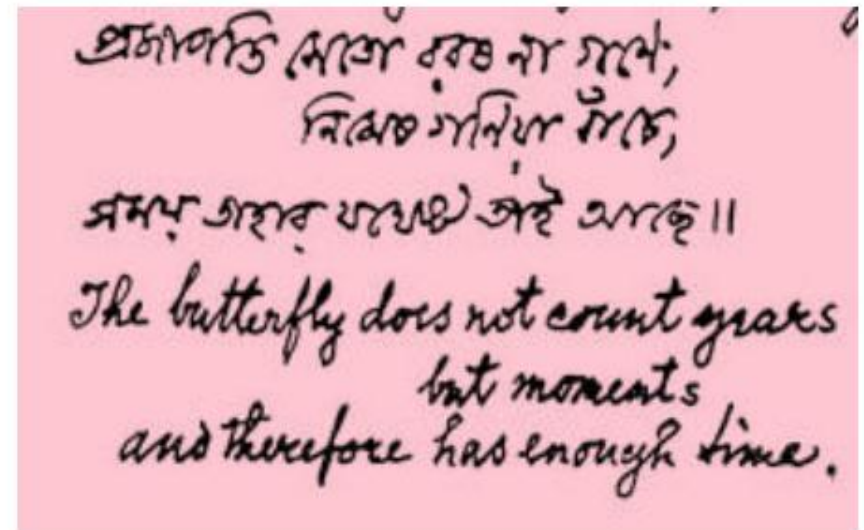 প্রজাপতি সেতো বরষ না গণে,
নিমেষ গনিয়া বাঁচে,
সময় তাহার যথেষ্ট তাই আছে॥
The butterfly does not count years
but moments
and therefore has enough time.